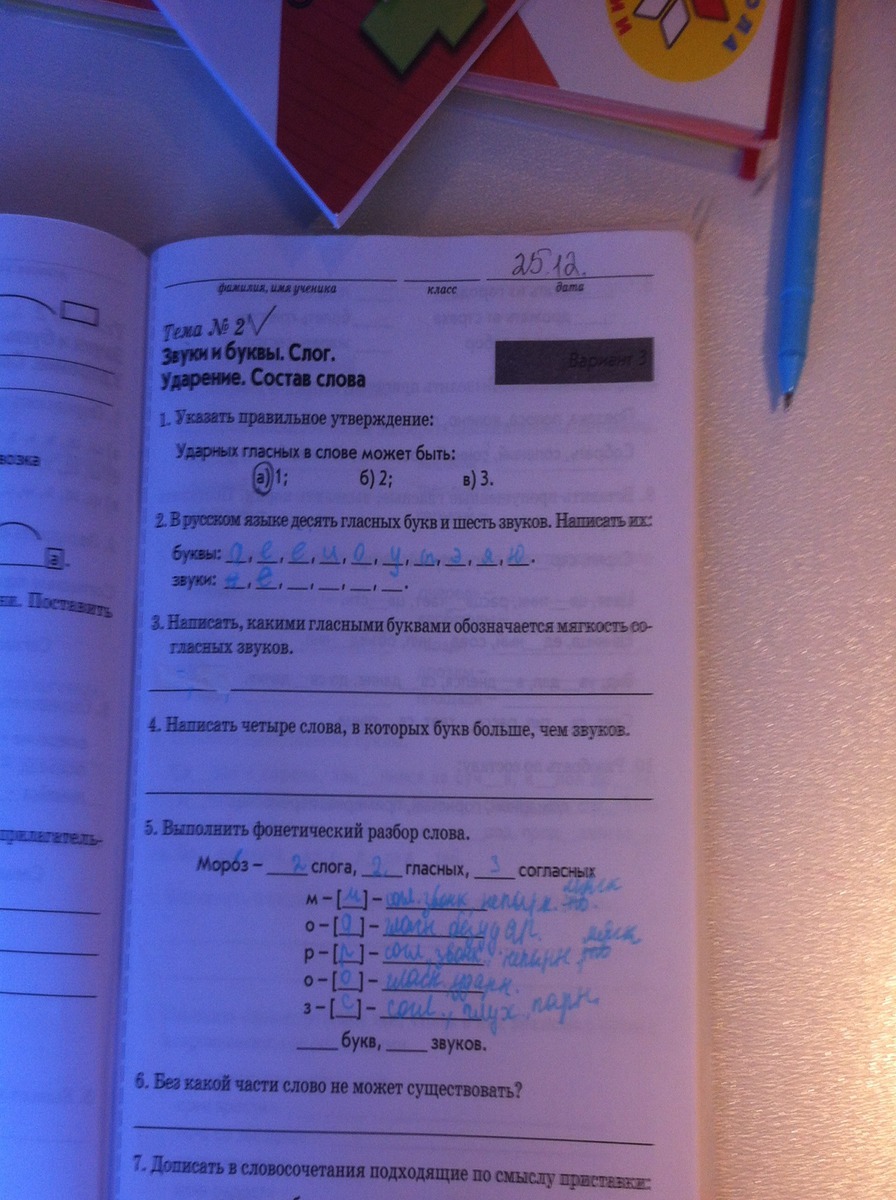 ОЛА
И
25.12.
фамилия, имя ученика класс дата
Тема № 2
Звуки и буквы. Слог.
Ударение. Состав слова
Вариант 3
1. Указать правильное утверждение:
Ударных гласных в слове может быть:
а) 1; б) 2; в) 3.
2. В русском языке десять гласных букв и шесть звуков. Написать их:
буквы: а, е, ё, и, о, у, ы, э, я, ю.
звуки:
3. Написать, какими гласными буквами обозначается мягкость со-
гласных звуков.
4. Написать четыре слова, в которых букв больше, чем звуков.
5. Выполнить фонетический разбор слова.
Мороз – 2 слога, 2 гласных, 3 согласных
м – [м] – согл. звонк., непарн.
о – [а] – гласн. безудар.
р – [р] – согл. звонк., непарн.,
о – [о] – гласн. ударн.
з – [с] – согл., глух. парн.
букв, звуков.
6. Без какой части слово не может существовать?
7. Дописать в словосочетания подходящие по смыслу приставки:
возка
а.
ни. Поставить
прилагатель-